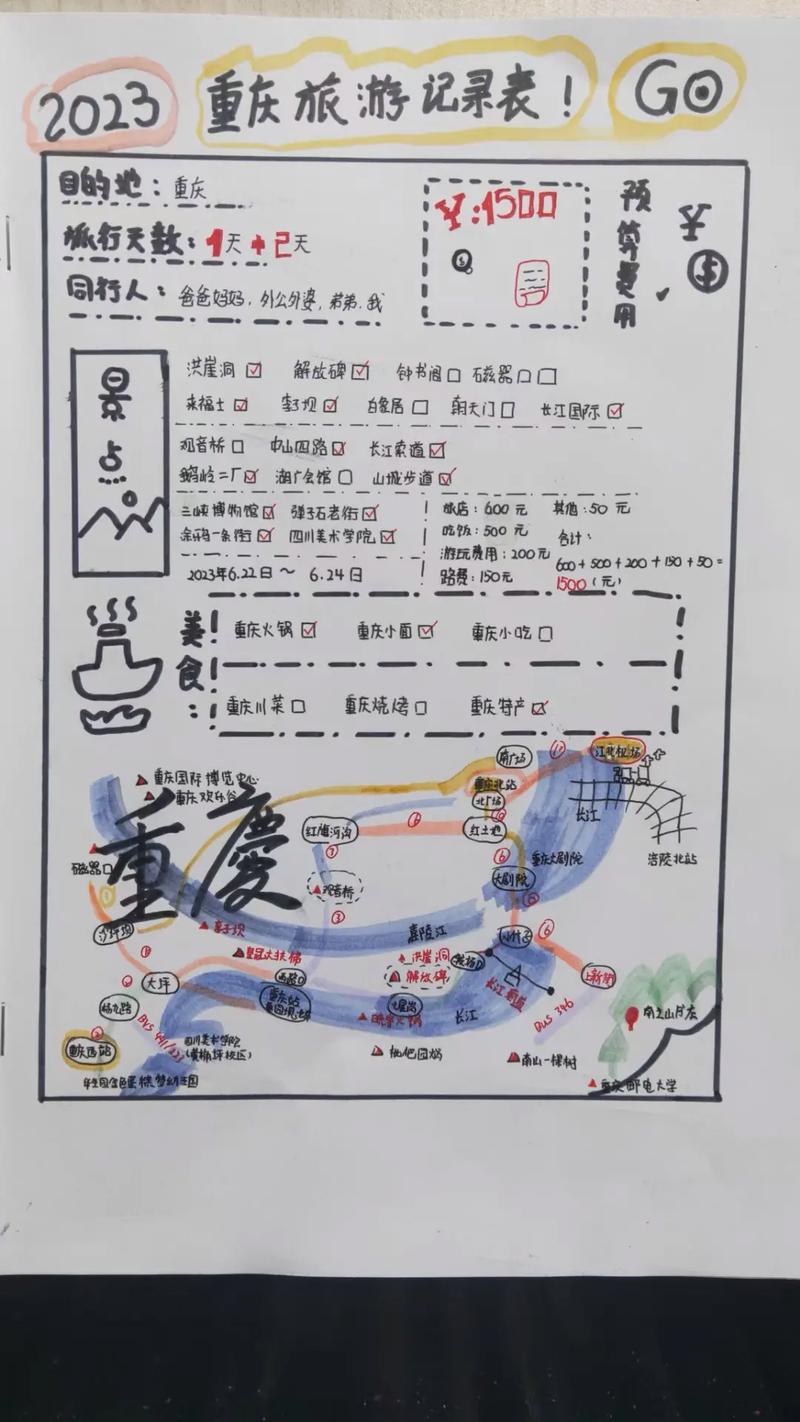 2023 重庆旅游记录表! GO
目的地：重庆
旅行天数：1天+2天
同行人：爸爸妈妈，外公外婆，弟弟.我
¥:1500
预算费用 ¥ $
景点
洪崖洞☑ 解放碑☑ 钟书阁□ 磁器口□
来福士☑ 李子坝☑ 白象居□ 朝天门□ 长江国际☑
观音桥□ 中山四路☑ 长江索道☑
鹅岭二厂☑ 湖广会馆□ 山城步道☑
三峡博物馆☑ 弹子石老街☑
涂鸦一条街☑ 四川美术学院☑
2023年6.22日～6.24日
旅店：600元 其他：50元
吃饭：500元 合计：
游玩费用：200元 600+500+200+150+50=
路费：150元 1500(元)
美食：
重庆火锅☑ 重庆小面☑ 重庆小吃□
重庆川菜□ 重庆烧烤□ 重庆特产☑
南广场 江北机场
重庆国际博览中心 重庆北站
重庆欢乐谷 北广场
长江
重慶
红旗河沟 红土地
涪陵北站
磁器口 重庆大剧院
观音桥 大剧院
沙坪坝 李子坝 嘉陵江 小什字
皇冠大扶梯 洪崖洞
大坪 解放碑 上新街
重庆站 七星岗 长江索道
杨九路 长江 Bus 346
Bus 441/223 四川美术学院 南山一棵树
(黄桷坪校区) 枇杷园火锅
重庆西站
重庆邮电大学